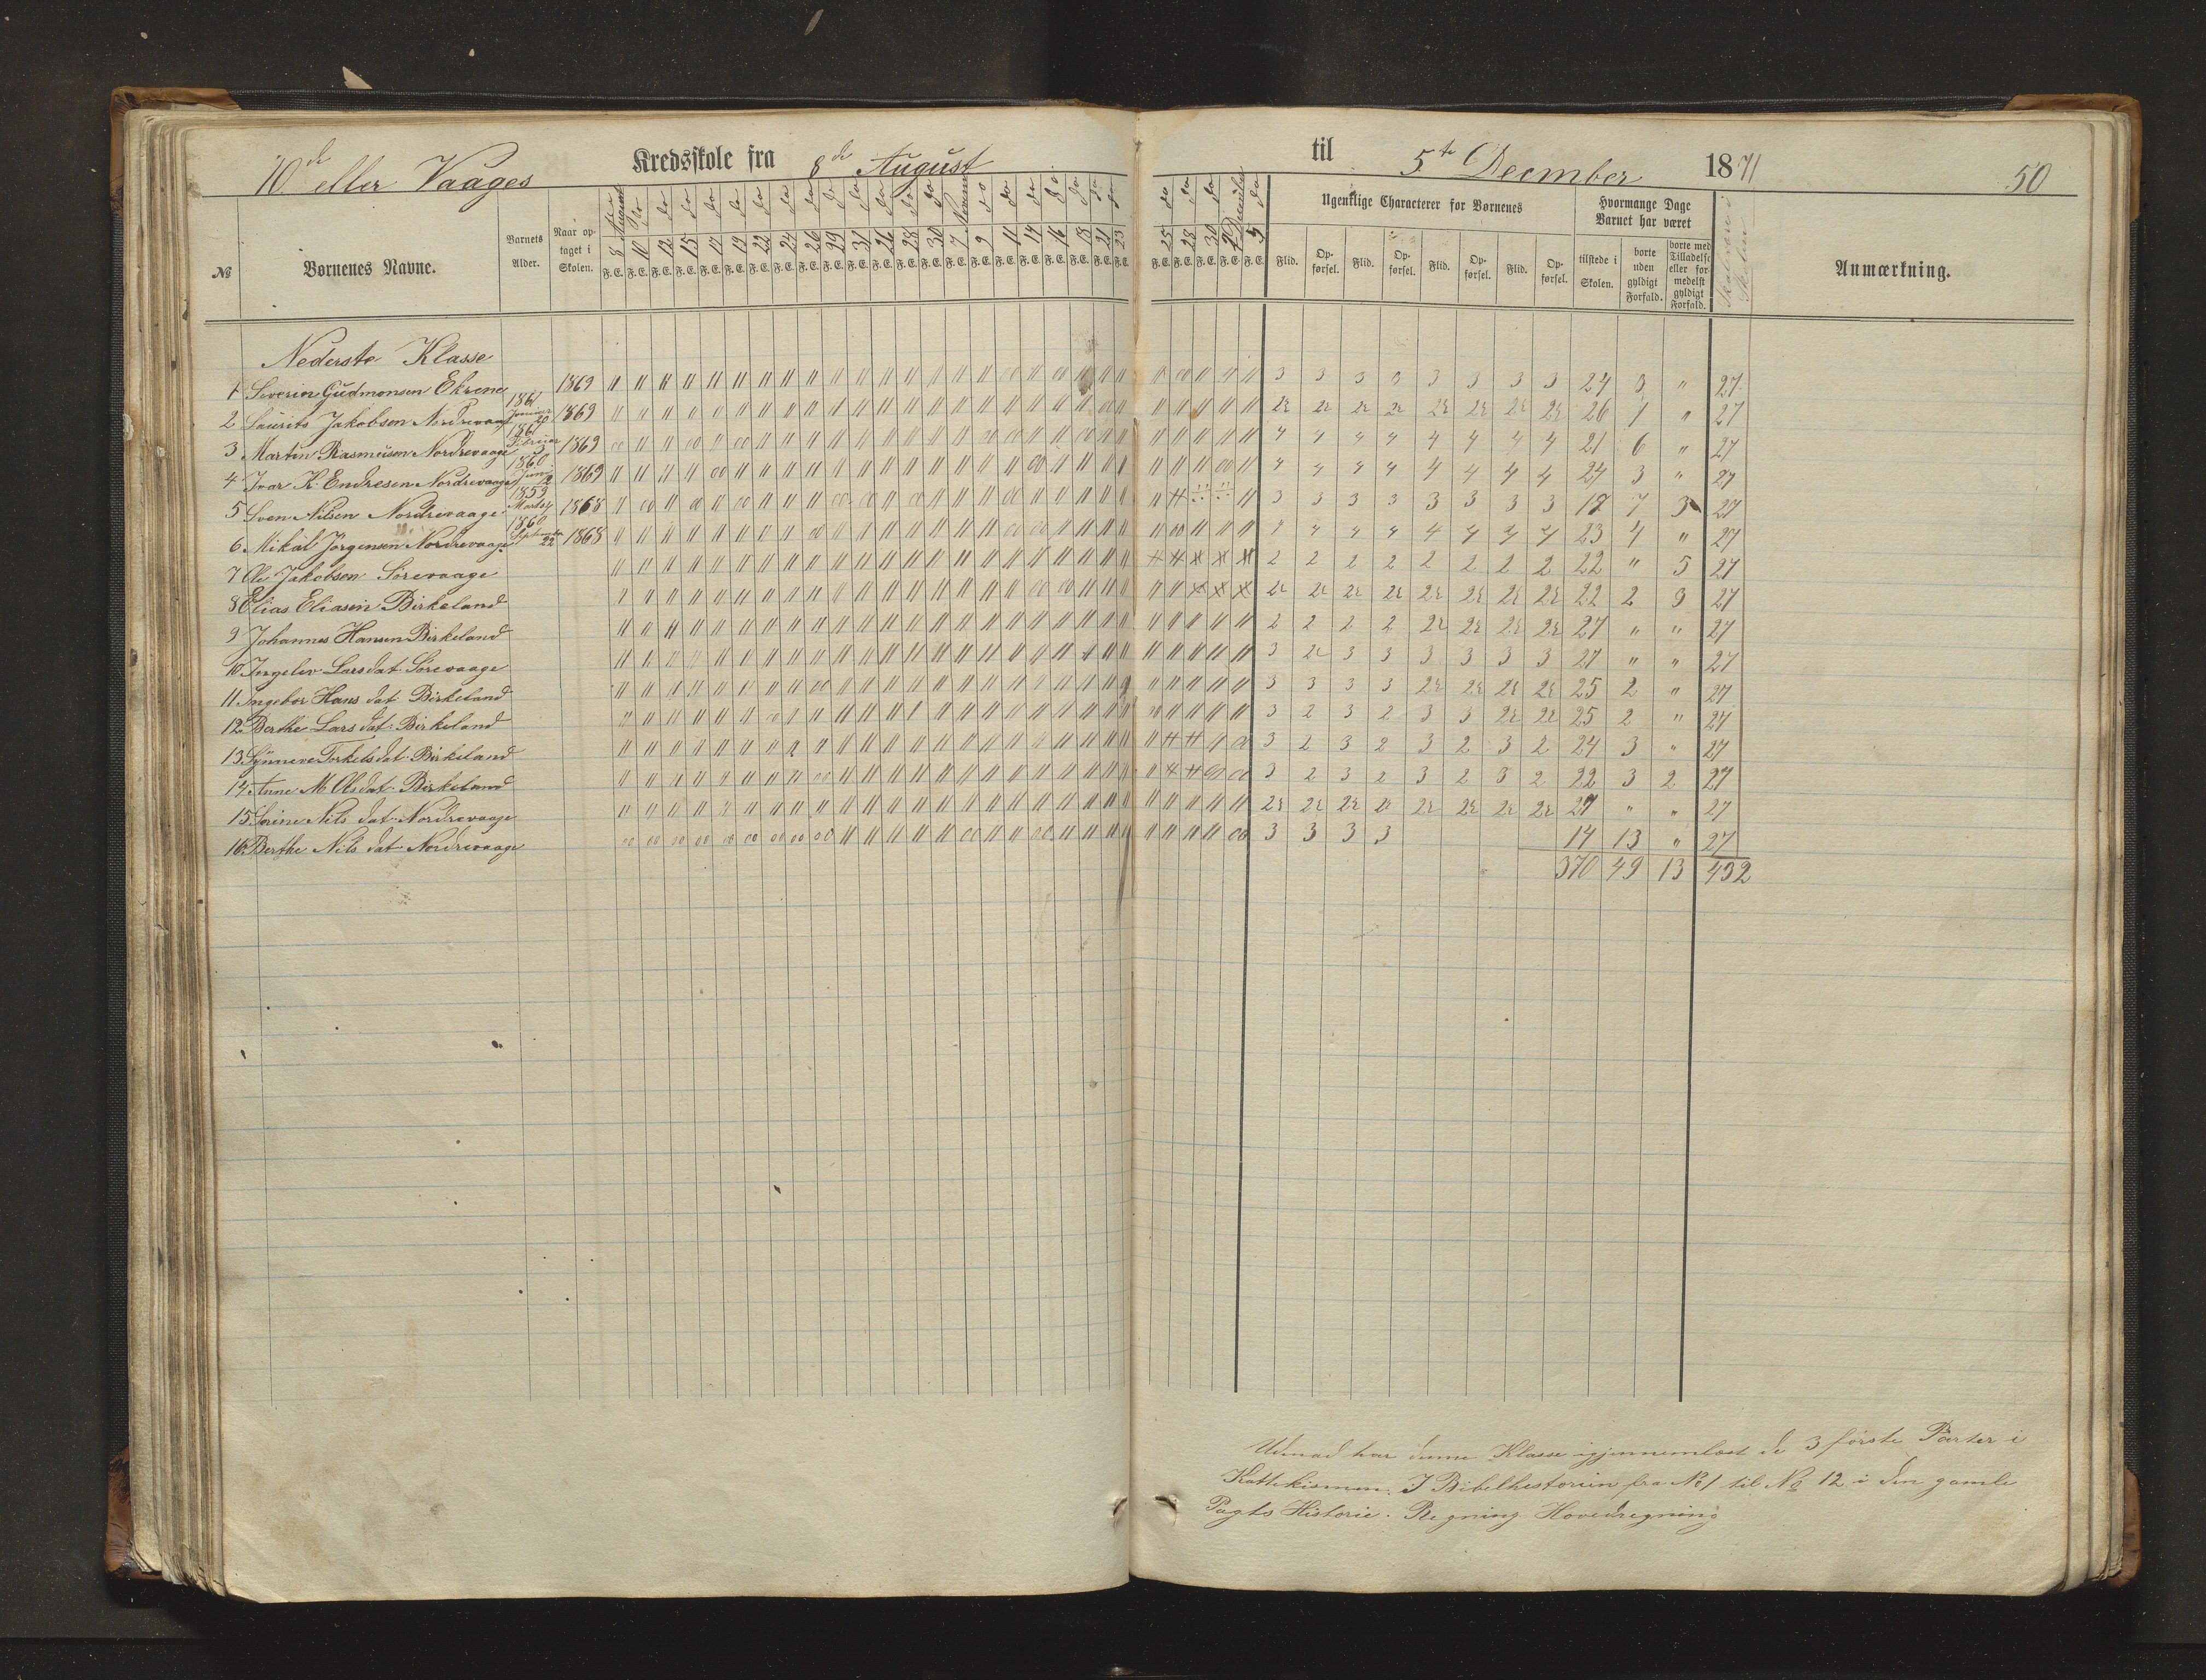 10de eller Vaages Kredsskole fra 8de August til 5te Decmber 1871 50
№ Børnenes Navne. Barnets Alder. Naar optaget i Skolen. Ugentlige Characterer for Børnenes Hvormange Dage Barnet har været Anmærkning.
8 August 10 12 15 17 19 22 24 26 29 31 26 28 30 7 9 11 14 16 18 21 23 25 28 30 2 5
F. E. F. E. F. E. F. E. F. E. F. E. F. E. F. E. F. E. F. E. F. E. F. E. F. E. F. E. F. E. F. E. F. E. F. E. F. E. F. E. F. E. F. E. F. E. F. E. F. E. F. E. F. E.
Flid. Opførsel. Flid. Opførsel. Flid. Opførsel. Flid. Opførsel. tilstede i Skolen. borte uden gyldigt Forfald. borte med Tilladelse eller formedelst gyldigt Forfald.
Nederste Klasse
1 Severin Gudmonsen Ekrene 1869 3 3 3 3 3 3 3 3 24 3 " 27
2 Laurits Jakobsen Nordrevaage 1861 Januar 29 1869 26 1 " 27
3 Martin Rasmusen Nordrevaage 1861 Februar 3 1869 4 4 4 4 4 4 4 4 21 6 " 27
4 Ivar K. Endresen Nordrevaage 1860 Juni 12 1869 4 4 4 4 4 4 4 4 24 3 " 27
5 Sven Nilsen Nordrevaage 1859 Marts 4 1868 3 3 3 3 3 3 3 3 17 7 3 27
6 Mikal Jørgensen Nordrevaage 1860 September 22 1868 4 4 4 4 4 4 4 4 23 4 " 27
7 Ole Jakobsen Sørevaage 2 2 2 2 2 2 2 2 22 " 5 27
8 Elias Eliasen Birkeland 22 2 3 27
9 Johannes Hansen Birkeland 2 2 2 2 27 " " 27
10 Ingelev Larsdat. Sørevaage 3 3 3 3 3 3 3 27 " " 27
11 Ingebor Hans dat Birkeland 3 3 3 3 25 2 " 27
12 Berthe Lars dat. Birkeland 3 2 3 2 3 3 25 2 " 27
13 Synneve Torkelsdat. Birkeland 3 2 3 2 3 2 3 2 24 3 " 27
14 Anne M Olsdat. Birkeland 3 2 3 2 3 2 3 2 22 3 2 27
15 Sørine Nils dat. Nordrevaage 27 " " 27
16 Berthe Nils dat Nordrevaage 3 3 3 3 14 13 " 27
370 49 13 432
har denne Klasse igjennemlæst de 3 første Parter i
Kattekismen. I Bibelhistorien fra No 1 til No 12 i den gamle
Pagts Historie. Regning Hovedregning